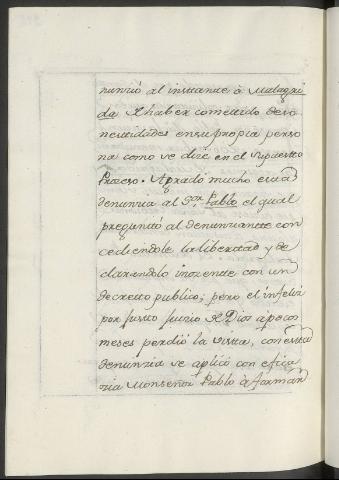 nunció al instante à Malagri
da de haber cometido deso
nestidades en su propia perso
na como se dize en el supuesto
Proceso. Agradó mucho esta
denunzia al Sor. Pablo el qual
preguntó al denunziante con
cediendole la libertad y de
clarandolo inosente con un
decreto publico; pero el infeliz
por justo juicio de Dios a pocos
meses perdió la vista, con esta
denunzia se aplicó con efica
zia Monseñor Pablo à forman